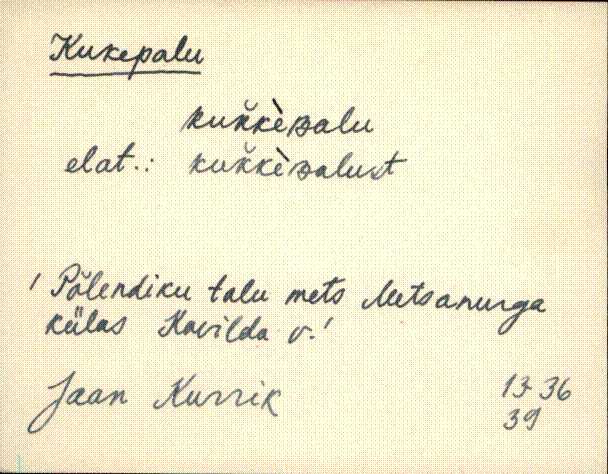 Kukepalu
kuk̆kèʙalu
elat.: kuk̆kèʙalust
' Põlendiku talu mets Metsanurga
külas Kavilda v.'
Jaan Kurrik 13-36
39